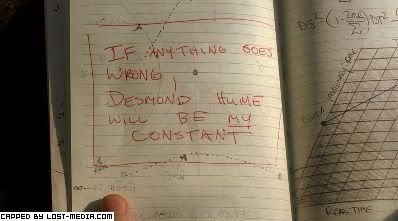 IF ANYTHING GOES
WRONG,
DESMOND HUME
WILL BE MY
CONSTANT
REAL TIME
CAPPED BY LOST-MEDIA.COM